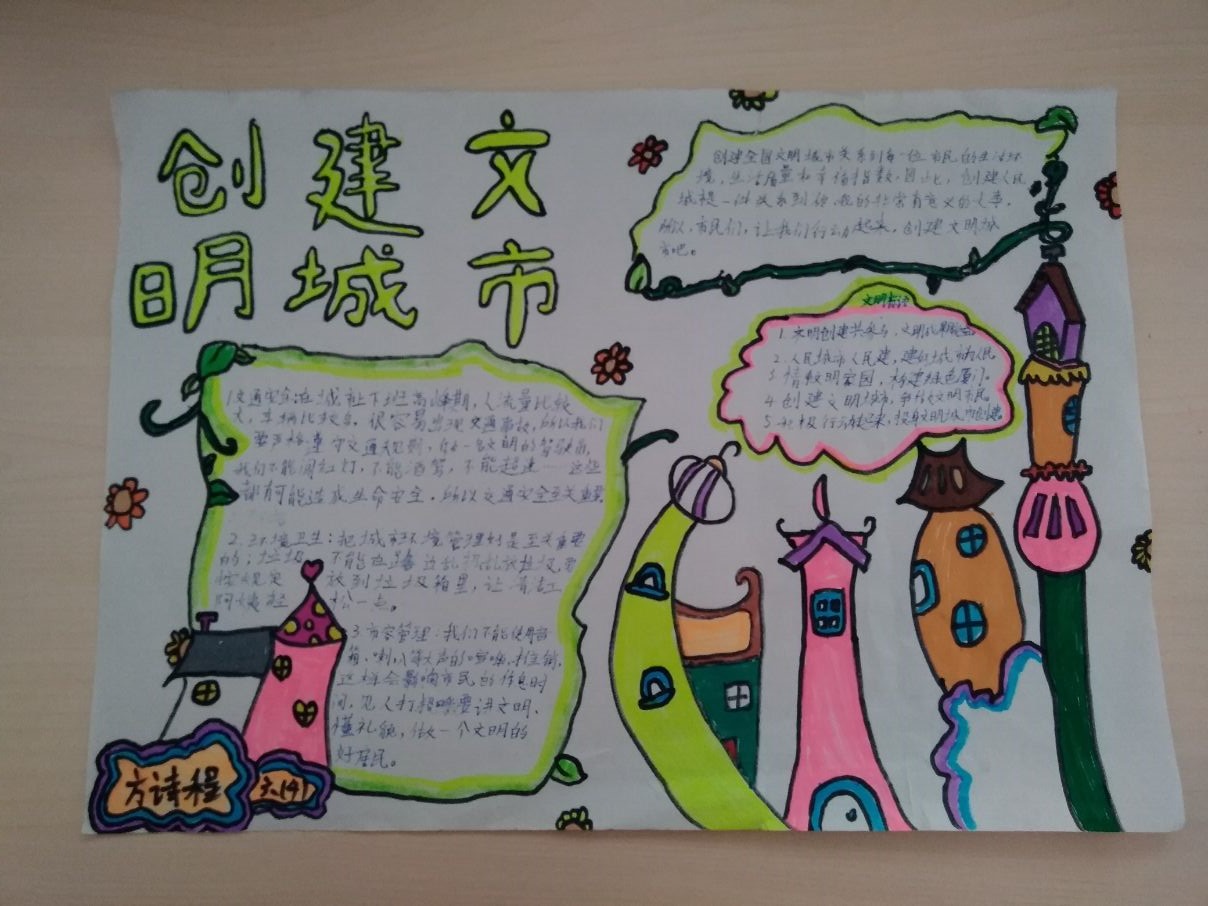 创建文
明城市
创建全国文明城市关系到每一位市民的生活环
境，生活质量和幸福指数，因此，创建人民
城视一件关系到你我的非常有意义的大事。
所以，市民们，让我们行动起来，创建文明城
市吧。
文明标语
1.文明创建共参与，文明成果
2.人民城市人民建，建好城市为人民
3.情文明家园，构建绿色厦门。
4.创建文明城市，争做文明市民。
5.积极行动起来，投身文明城市创建。
1.交通安全:在城市上下班高峰期，人流量比较
大，车辆比较多，很容易出现交通事故，所以我们
要严格遵守交通规则，做一名文明的驾驶员，
我们不能闯红灯，不能酒驾，不能超速……这些
都有可能造成生命安全，所以交通安全至关重要
2.环境卫生：把城市环境管理好是至关重要
的；垃圾不能随乱扔乱放垃圾，要
按规定放到垃圾箱里，让清
阿姨轻松一点。
3.市容管理：我们不能使用音
箱、喇叭等大声的喧哗、推销，
这样会影响市民的作息时
间，见人打招呼要讲文明、
懂礼貌，做一个文明的
好居民。
方诗程
六(4)